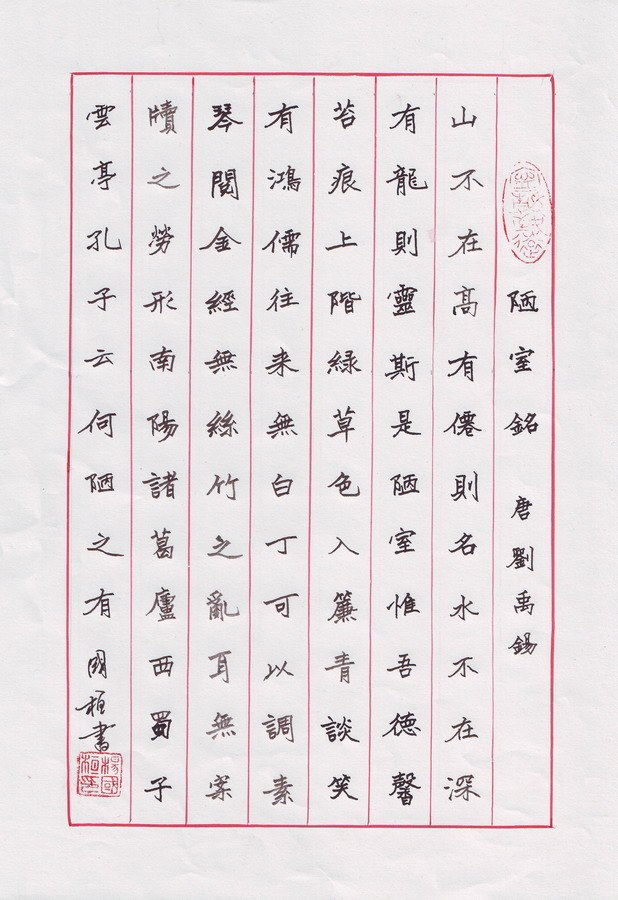 陋室銘 唐劉禹錫
山不在高有僊則名水不在深
有龍則靈斯是陋室惟吾德馨
苔痕上階緑草色入簾青談笑
有鴻儒往来無白丁可以調素
琴閲金經無絲竹之亂耳無案
牘之勞形南陽諸葛廬西蜀子
雲亭孔子云何陋之有 國桓書
楊國桓印